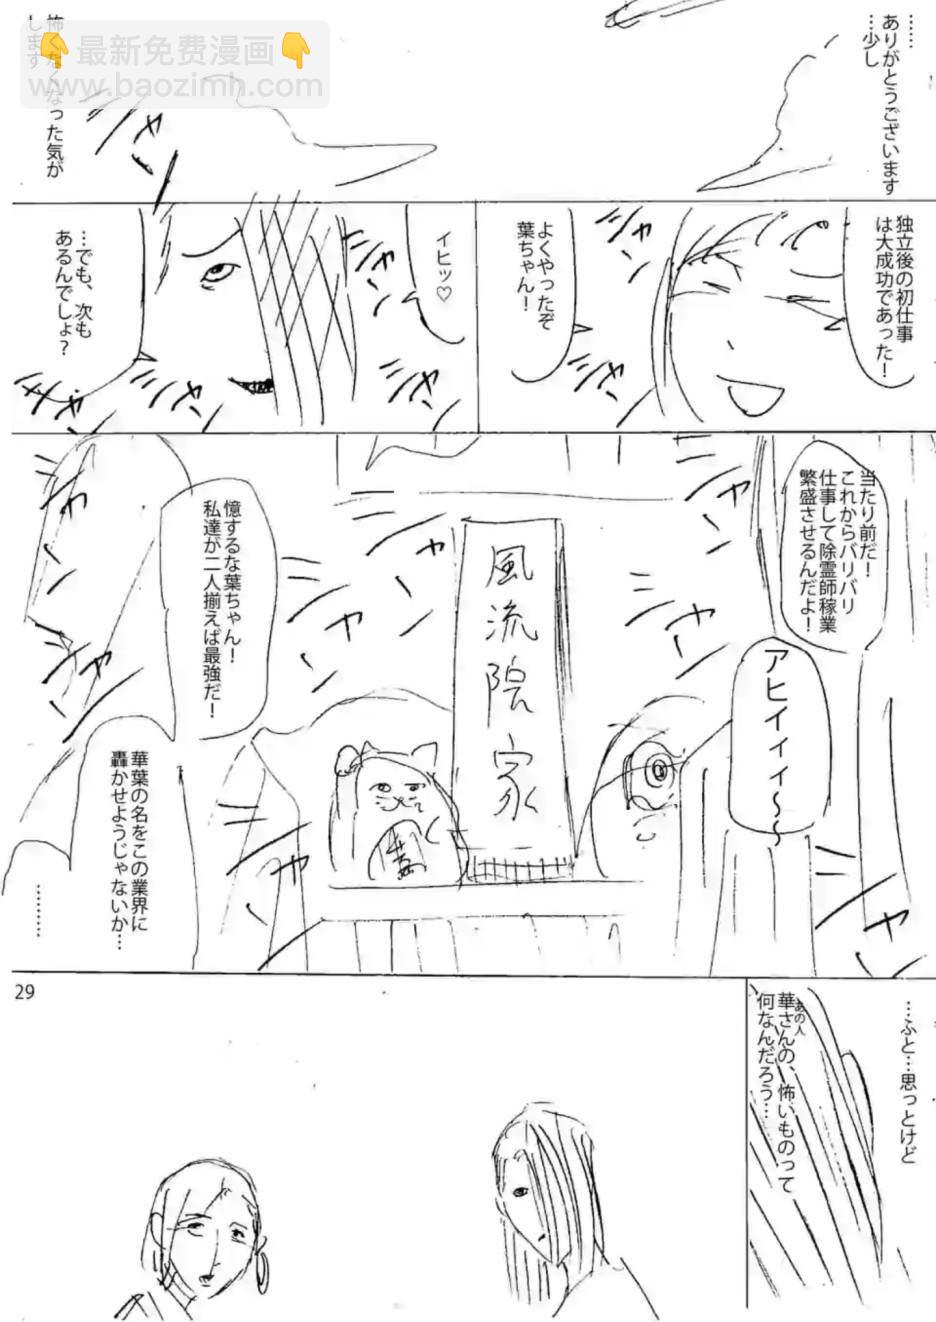 ……
ありがとうございます
…少し
怖くなくなった気が
します
最新免费漫画
www.baozimh.com
ジャ
独立後の初仕事
は大成功であった！
よくやったぞ
葉ちゃん！
イヒッ♡
…でも、次も
あるんでしょ？
当たり前だ！
これからバリバリ
仕事して除霊師稼業
繁盛させるんだよ！
アヒィィィ〜〜
風流院家
憶するな葉ちゃん！
私達が二人揃えば最強だ！
華葉の名をこの業界に
轟かせようじゃないか…
………
…ふと…思っとけど
華さんの、怖いものって
あの人
何なんだろう…
29